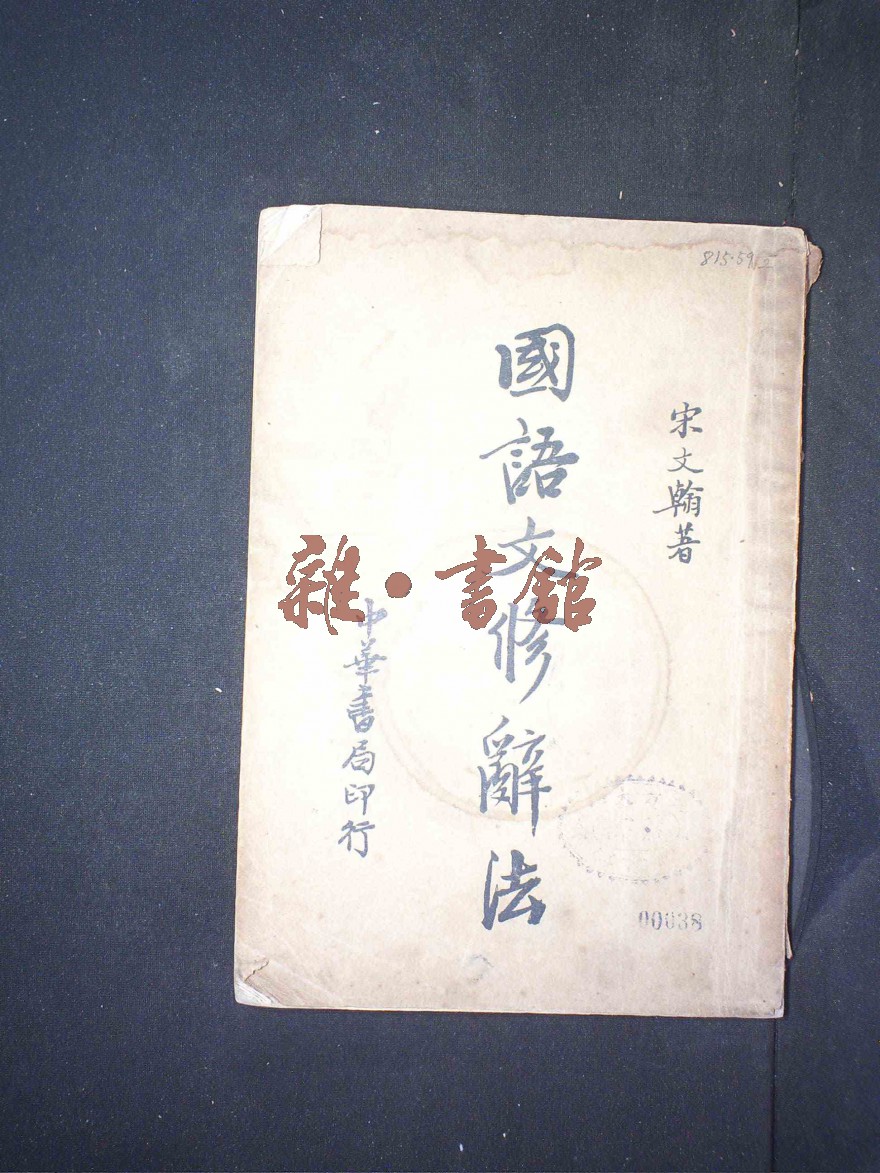 815.59
宋文翰著
國語文修辭法
中華書局印行
雜·書館
00038